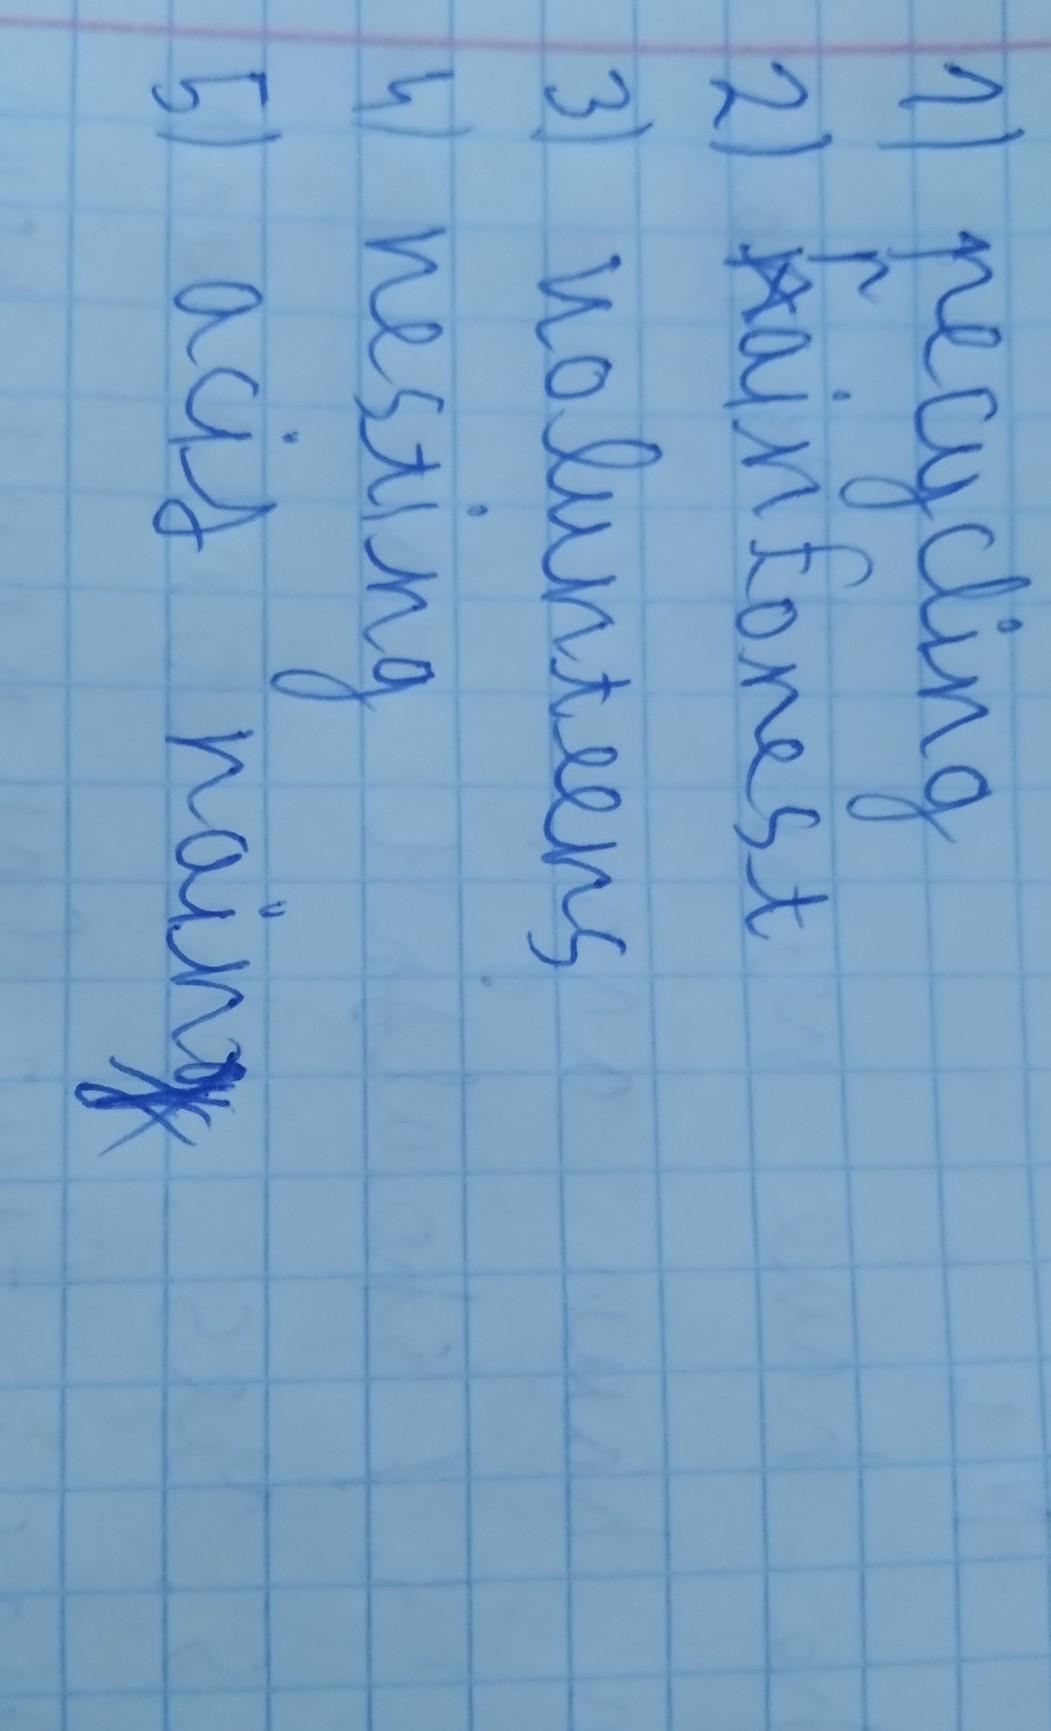 1) recycling
2) rainforest
3) volunteers
4) nesting
5) acid rain